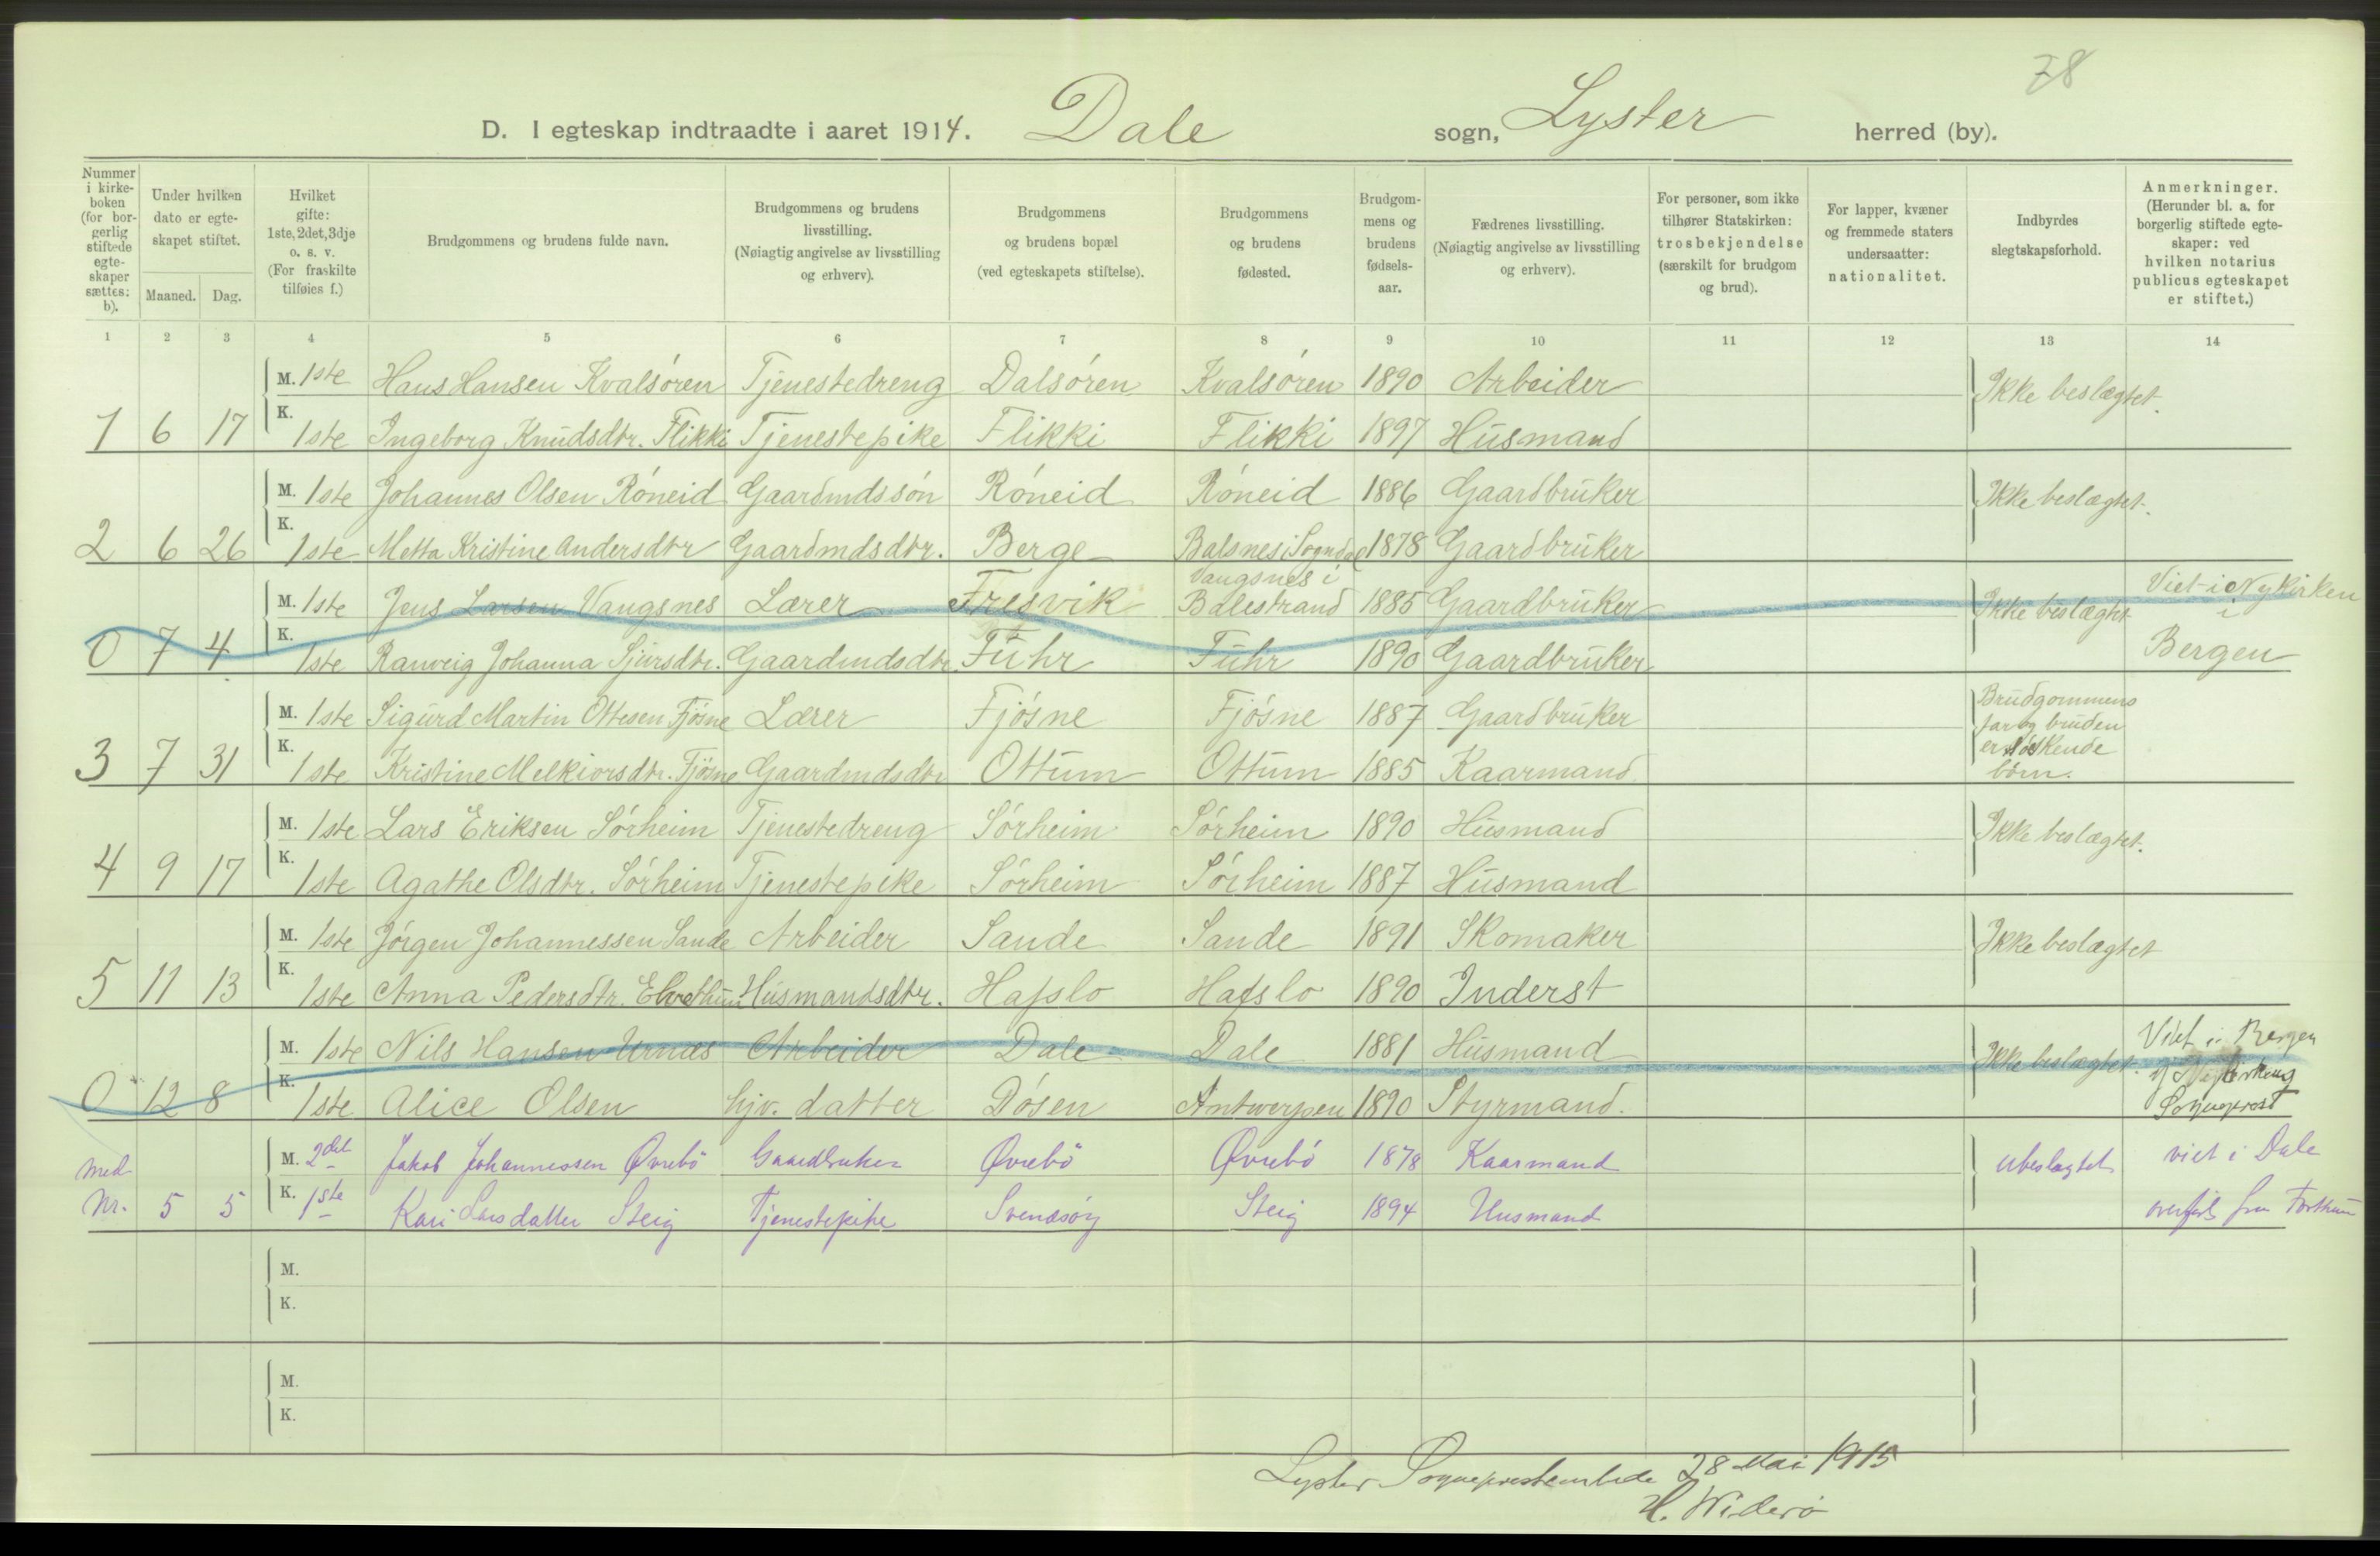 78
D. I egteskap indtraadte i aaret 1914. Dale sogn, Lyster herred (by).
Nummer i kirke-boken (for bor-gerlig stiftede egte-skaper sættes: b).
Under hvilken dato er egte-skapet stiftet.
Maaned. Dag.
Hvilket gifte: 1ste, 2det, 3dje o. s. v. (For fraskilte tilføies f.)
Brudgommens og brudens fulde navn.
Brudgommens og brudens livsstilling. (Nøiagtig angivelse av livsstilling og erhverv).
Brudgommens og brudens bopæl (ved egteskapets stiftelse).
Brudgommens og brudens fødested.
Brudgom-mens og brudens fødsels-aar.
Fædrenes livsstilling. (Nøiagtig angivelse av livsstilling og erhverv).
For personer, som ikke tilhører Statskirken: trosbekjendelse (særskilt for brudgom og brud).
For lapper, kvæner og fremmede staters undersaatter: nationalitet.
Indbyrdes slegtskapsforhold.
Anmerkninger. (Herunder bl. a. for borgerlig stiftede egte-skaper: ved hvilken notarius publicus egteskapet er stiftet.)
1 2 3 4 5 6 7 8 9 10 11 12 13 14
M. 1ste Hans Hansen Kvalsóren Tjenestedreng Dalsóren Kvalsóren 1890 Arbeider Ikke beslægtet.
1 6 17 K. 1ste Ingeborg Knudsdtr. Flikki Tjenestepike Flikki Flikki 1897 Husmand
M. 1ste Johannes Olsen Róneid Gaardmdssón Róneid Róneid 1886 Gaardbruker Ikke beslægtet.
2 6 26 K. 1ste Metta Kristine Andersdtr Gaardmdsdtr. Berge Balsnes i Sogndal 1878 Gaardbruker
M. 1ste Jens Larsen Vangsnes Lærer Fresvik Vangsnes i Balestrand 1885 Gaardbruker Ikke beslægtet Viet i Nykirken i
0 7 4 K. 1ste Ranveig Johanna Sjursdtr. Gaardmdsdtr. Fuhr Fuhr 1890 Gaardbruker Bergen
M. 1ste Sigurd Martin Ottesen Fjósne Lærer Fjósne Fjósne 1887 Gaardbruker Brudgommens far og bruden
3 7 31 K. 1ste Kristine Melkiorsdtr. Fjósne Gaardmdsdtr Ottum Ottum 1885 Kaarmand er sóskende bórn.
M. 1ste Lars Eriksen Sórheim Tjenestedreng Sórheim Sórheim 1890 Husmand Ikke beslægtet.
4 9 17 K. 1ste Agathe Olsdtr. Sórheim Tjenestepike Sórheim Sórheim 1887 Husmand
M. 1ste Jórgen Johannessen Sande Arbeider Sande Sande 1891 Skomaker Ikke beslægtet
5 11 13 K. 1ste Anna Pedersdtr. Husmandsdtr. Hafslo Hafslo 1890 Inderst
M. 1ste Nils Hansen Urnæs Arbeider Dale Dale 1881 Husmand Ikke beslægtet. Viet i Bergen
0 12 8 K. 1ste Alice Olsen hjv. datter Dósen Antwerpen 1890 Styrmand. Sogneprest
med M. 2det Jakob Johannessen Øvrebö Gaardbruker Øvrebö Øvrebó 1878 Kaarmand ubeslægtet viet i Dale
Nr. 5 5 K. 1ste Kari Larsdatter Steig Tjenestepike Svendsøy Steig 1894 Husmand overført fra Forthun
M.
K.
M.
K.
Lyster Sogneprestembede 28 Mai 1915
H. Widerö